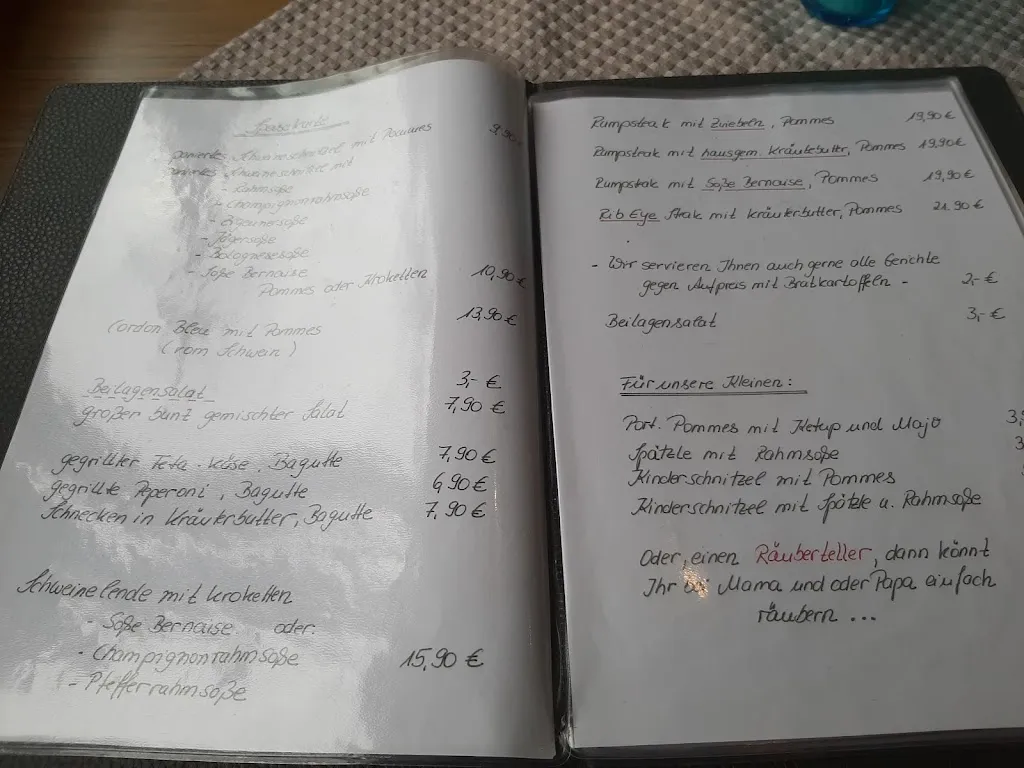 Speisekarte
paniertes Schweineschnitzel mit Pommes 9,90
paniertes Schweineschnitzel mit
- Rahmsoße
- Champignonrahmsoße
- Zigeunersoße
- Jägersoße
- Bolognesesoße
- Soße Bernaise
Pommes oder Kroketten 10,90 €
Cordon Bleu mit Pommes 13,90 €
(vom Schwein)
Beilagensalat 3,- €
großer bunt gemischter Salat 7,90 €
gegrillter Feta-Käse, Bagutte 7,90 €
gegrillte Peperoni, Bagutte 6,90 €
Schnecken in Kräuterbutter, Bagutte 7,90 €
Schweinelende mit Kroketten
- Soße Bernaise oder:
- Champignonrahmsoße 15,90 €
- Pfefferrahmsoße
Rumpsteak mit Zwiebeln, Pommes 19,90 €
Rumpsteak mit hausgem. Kräuterbutter, Pommes 19,90 €
Rumpsteak mit Soße Bernaise, Pommes 19,90 €
Rib Eye Steak mit Kräuterbutter, Pommes 21,90 €
- Wir servieren Ihnen auch gerne alle Gerichte
gegen Aufpreis mit Bratkartoffeln - 2,- €
Beilagensalat 3,- €
Für unsere Kleinen:
Port. Pommes mit Ketup und Majo
Spätzle mit Rahmsoße
Kinderschnitzel mit Pommes
Kinderschnitzel mit Spätzle u. Rahmsoße
Oder, einen Räuberteller, dann könnt
Ihr bei Mama und oder Papa einfach
räubern ...